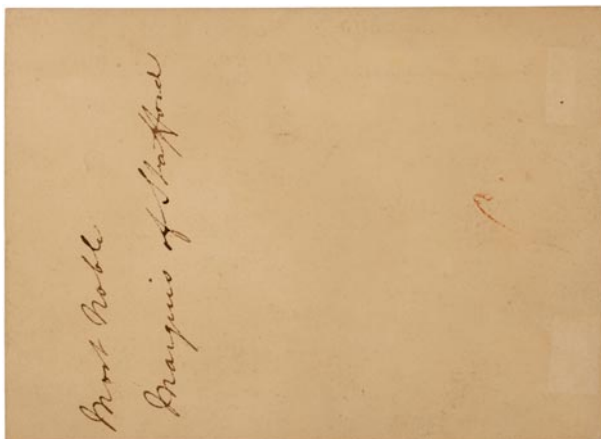 Most Noble
Marquis of Stafford